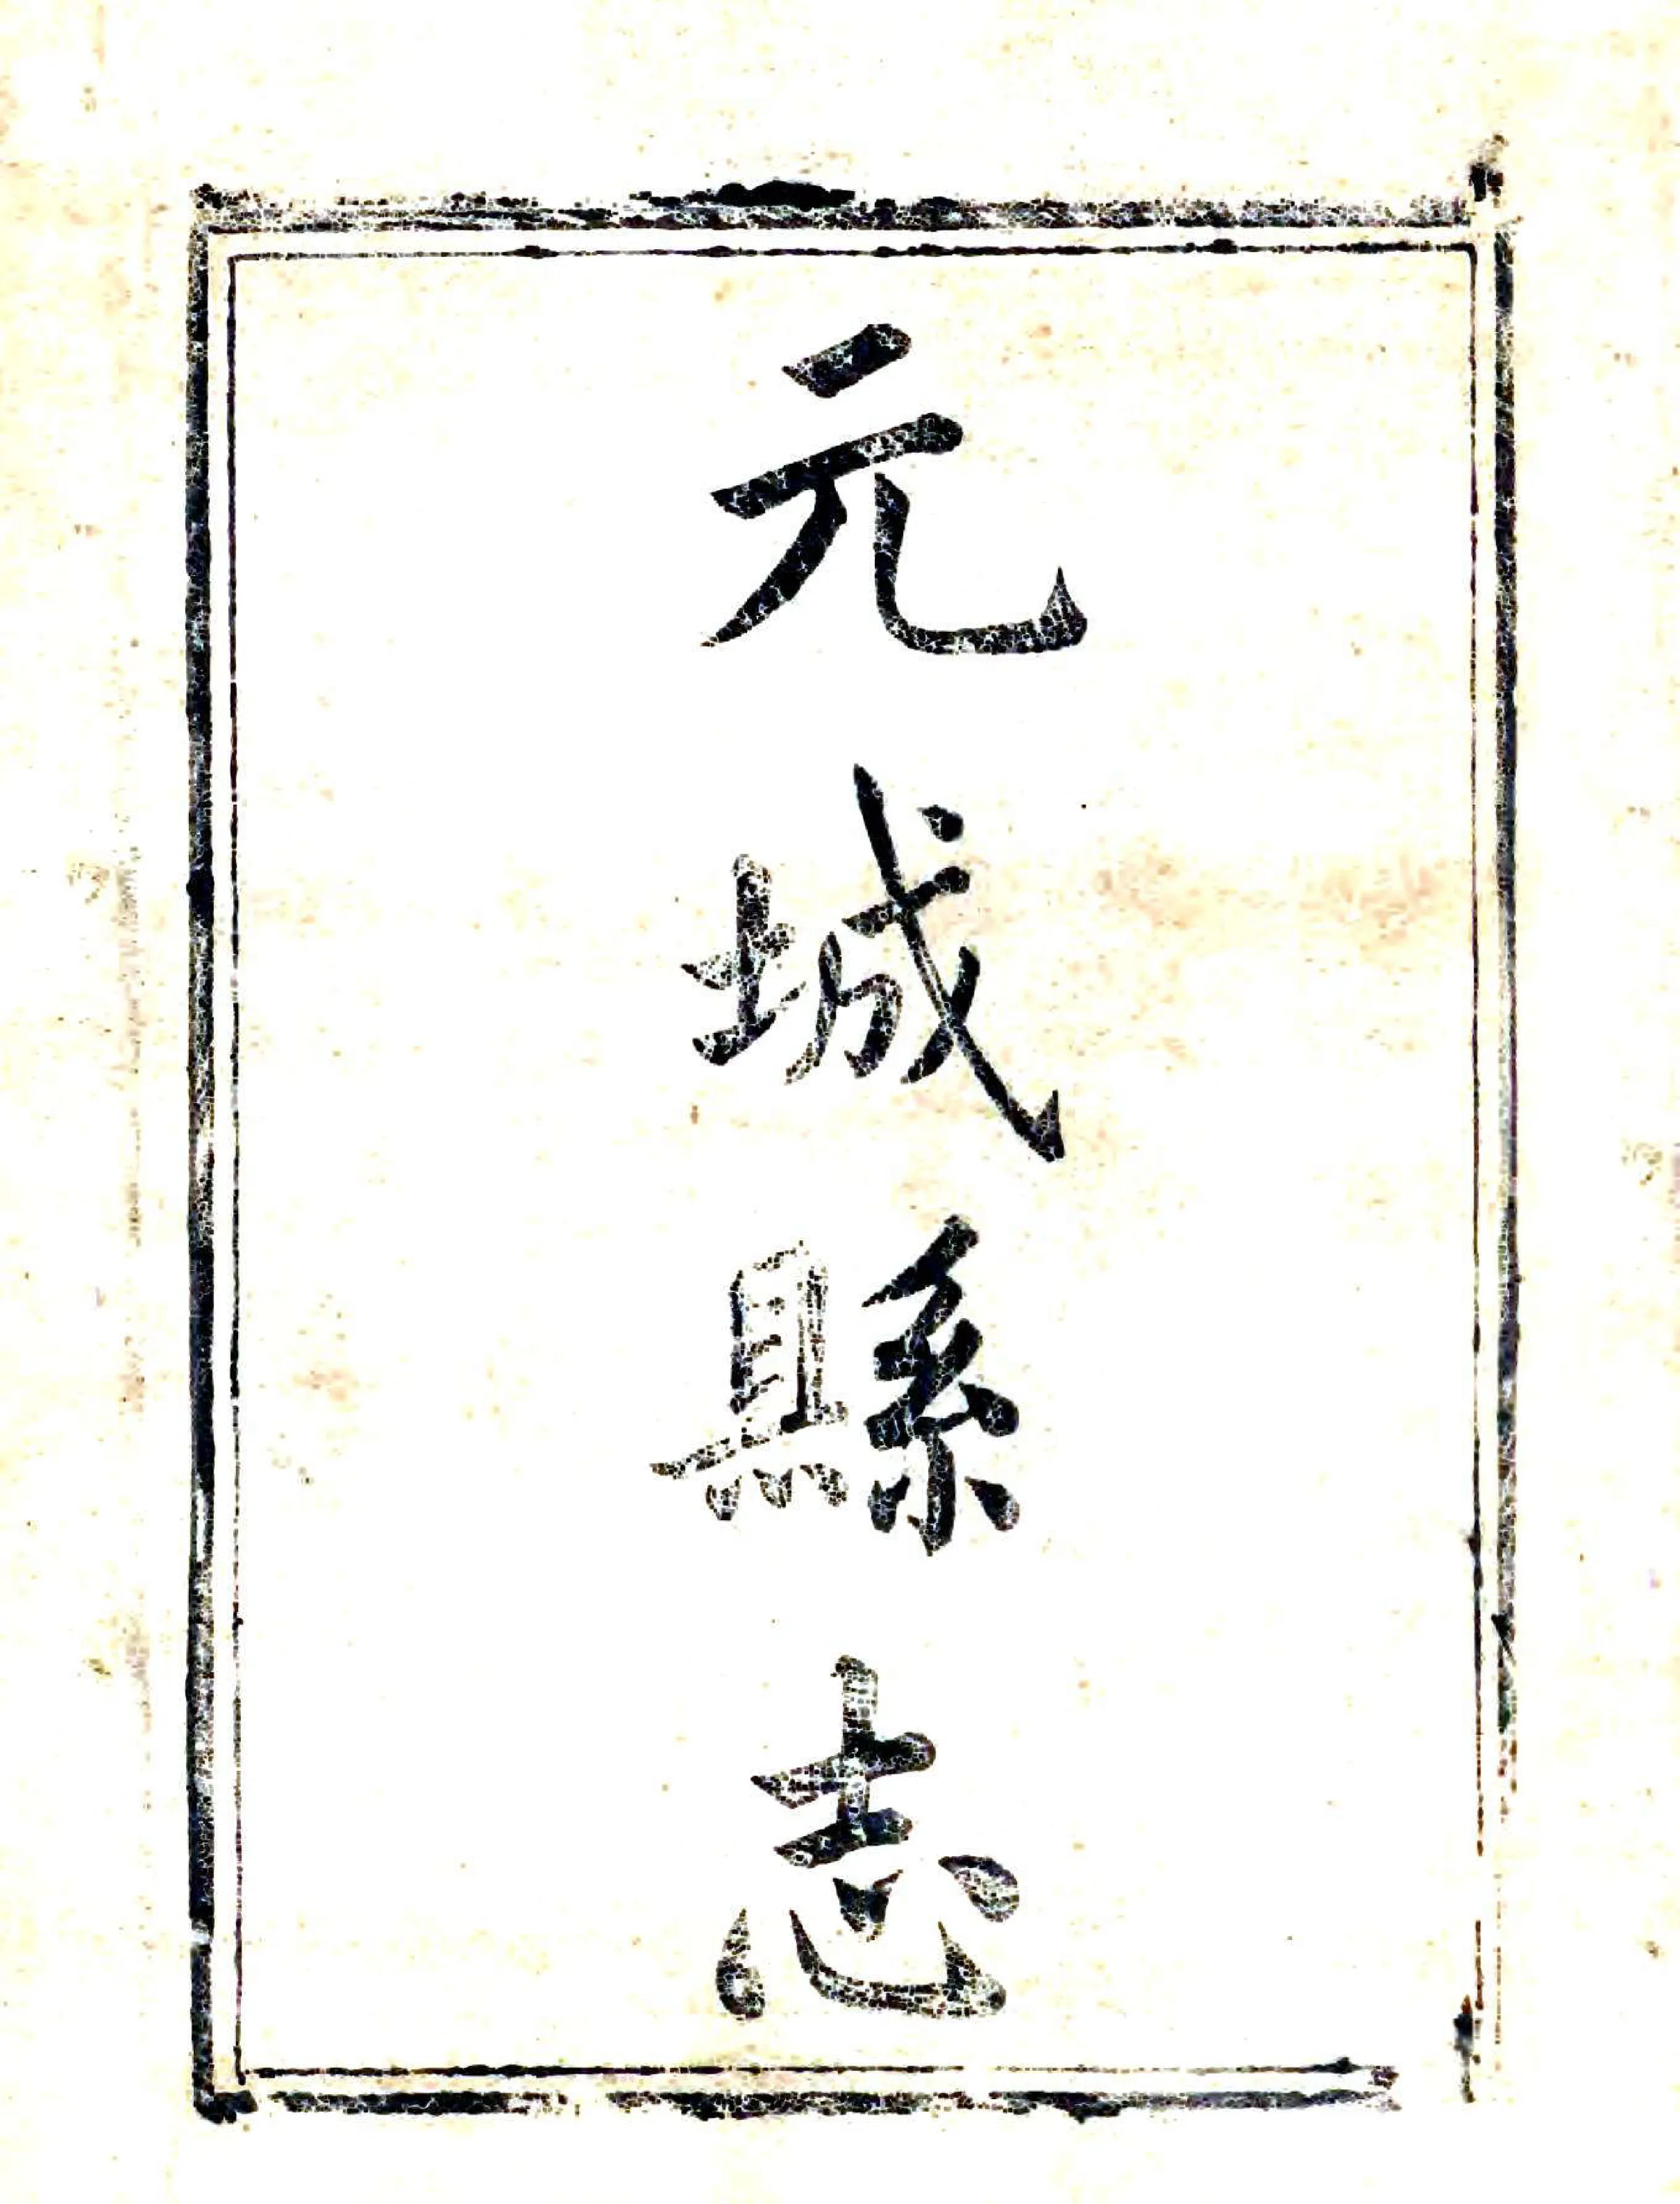 元城縣志